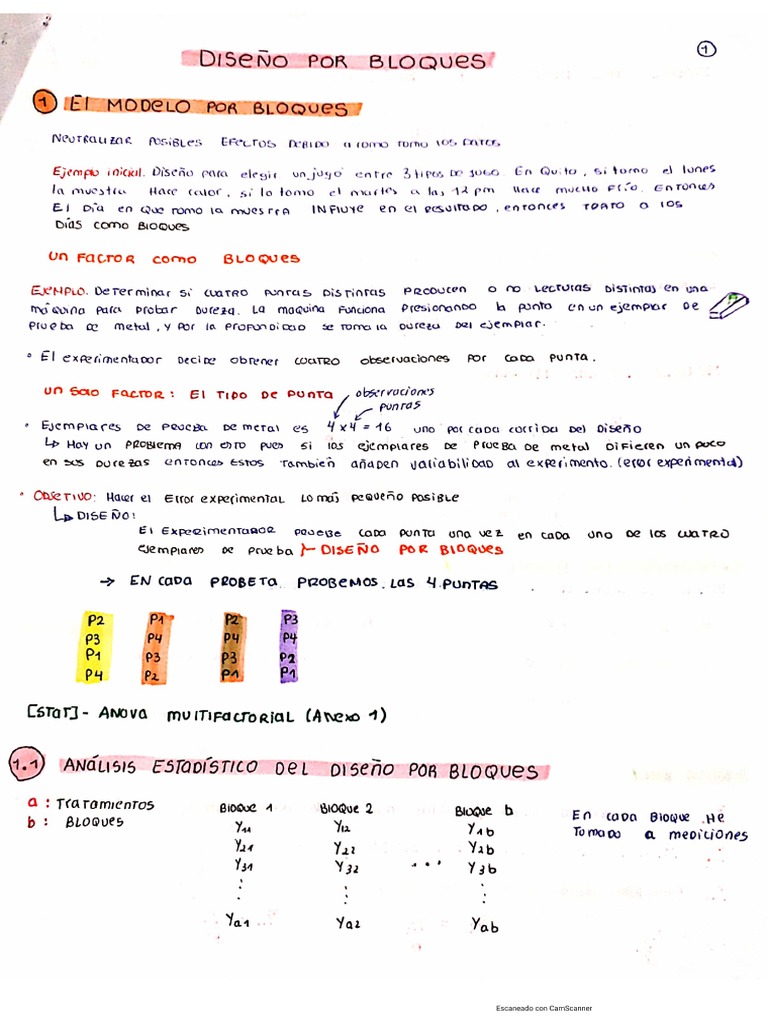 DISEÑO POR BLOQUES
1
1 El MODELO POR BLOQUES
NEUTRALIZAR POSIBLES EFECTOS DEBIDO a como tomo los datos
Ejemplo inicial. Diseño para elegir un jugo entre 3 tipos de jugo. En Quito, si tomo el lunes
la muestra Hace calor, si lo tomo el martes a las 12 pm Hace mucho frío. Entonces
El Día en que tomo la muestra INFluye en el resultado, entonces trato a los
Días como Bloques
UN FACTOR COMO BLOQUES
EJEMPLO. Determinar si cuatro puntas distintas PRODUCEN o no lecturas distintas en una
máquina para probar dureza. La maquina funciona Presionando la punta en un ejemplar de
Prueba de metal, y por la profundidad se toma la dureza del ejemplar.
• El experimentador decide obtener cuatro observaciones por cada punta.
UN SOLO FACTOR: El TIPO DE PUNTA
observaciones
puntas
• Ejemplares de prueba de metal es 4 x 4 = 16 uno por cada corrida del diseño
↳ Hay un PROBLEMA con esto pues si los ejemplares de prueba de metal difieren un poco
en sus durezas entonces estos también añaden variabilidad al experimento. (error experimental)
• Objetivo: Hacer el Error experimental lo más pequeño posible
↳ DISEÑO:
El Experimentador pruebe cada punta una vez en cada uno de los cuatro
ejemplares de prueba } DISEÑO POR BLOQUES
→ EN cada PROBETA PROBEMOS LAS 4 PUNTAS
P2 P1 P2 P3
P3 P4 P4 P4
P1 P3 P3 P2
P4 P2 P1 P1
[STAT] - ANOVA MULTIFACTORIAL (Anexo 1)
1.1 ANÁLISIS ESTADÍSTICO DEL DISEÑO POR BLOQUES
a : Tratamientos
b : Bloques
Bloque 1 Bloque 2 Bloque b
Y11 Y12 Y1b
Y21 Y22 Y2b
Y31 Y32 ... Y3b
⋮ ⋮ ⋮
Ya1 Ya2 Yab
En cada Bloque he
Tomado a mediciones
Escaneado con CamScanner